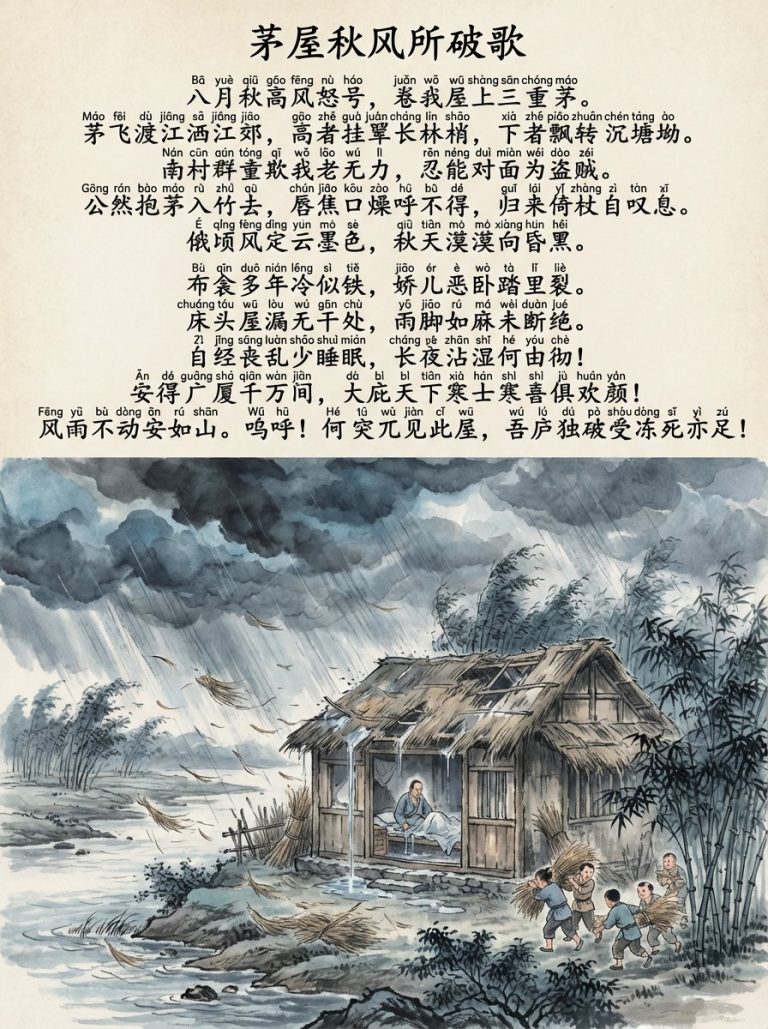 茅屋秋风所破歌
Bā yuè qiū gāo fēng nù háo juǎn wǒ wū shàng sān chóng máo
八月秋高风怒号，卷我屋上三重茅。
Máo fēi dù jiāng sǎ jiāng jiāo gāo zhě guà juàn cháng lín shāo xià zhě piāo zhuǎn chén táng ào
茅飞渡江洒江郊，高者挂罩长林梢，下者飘转沉塘坳。
Nán cūn qún tóng qī wǒ lǎo wú lì rěn néng duì miàn wéi dào zéi
南村群童欺我老无力，忍能对面为盗贼。
Gōng rán bào máo rù zhú qù chún jiāo kǒu zào hū bù dé guī lái yǐ zhàng zì tàn xī
公然抱茅入竹去，唇焦口燥呼不得，归来倚杖自叹息。
É qǐng fēng dìng yun mò sè qiū tiān mò mò xiàng hun hēi
俄顷风定云墨色，秋天漠漠向昏黑。
Bù qīn duō nián lěng sì tiě jiāo ér è wò tà lǐ liè
布衾多年冷似铁，娇儿恶卧踏里裂。
chuáng tóu wū lòu wú gān chù yǔ jiǎo rú má wèi duàn jué
床头屋漏无干处，雨脚如麻未断绝。
Zì jīng sāng luàn shǎo shuì mián cháng yè zhān shī hé yóu chè
自经丧乱少睡眠，长夜沾湿何由彻！
Ān dé guǎng shà qiān wàn jiàn dà bì tiān xià hán shì jù huān yán
安得广厦千万间，大庇天下寒士寒喜俱欢颜！
Fēng yǔ bù dòng ān rú shān Wū hū Hé wù jiàn cǐ wū wú lú dú pò shòu dòng sǐ yì zú
风雨不动安如山。呜呼！何突兀见此屋，吾庐独破受冻死亦足！